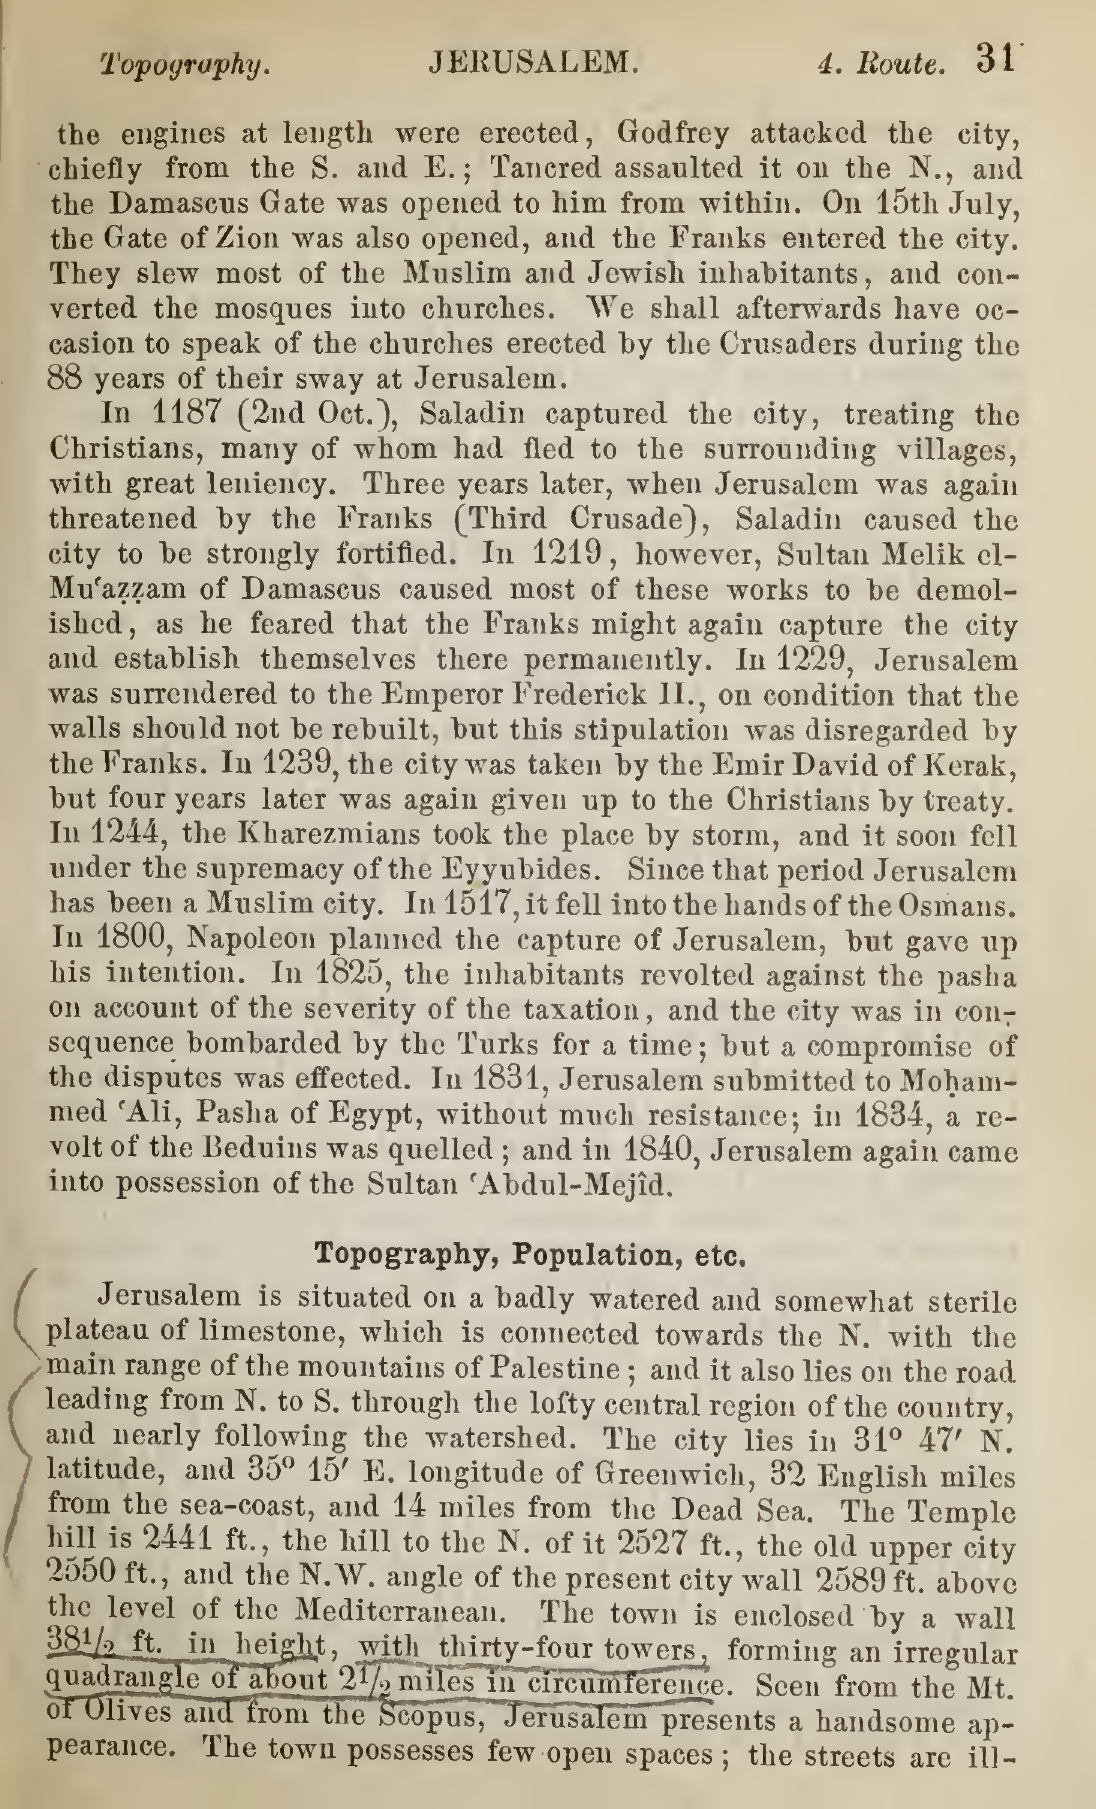 Topography. JERUSALEM. 4. Route. 31
the engines at length were erected, Godfrey attacked the city,
chiefly from the S. and E.; Tancred assaulted it on the N., and
the Damascus Gate was opened to him from within. On 15th July,
the Gate of Zion was also opened, and the Franks entered the city.
They slew most of the Muslim and Jewish inhabitants, and con-
verted the mosques into churches. We shall afterwards have oc-
casion to speak of the churches erected by the Crusaders during the
88 years of their sway at Jerusalem.
In 1187 (2nd Oct.), Saladin captured the city, treating the
Christians, many of whom had fled to the surrounding villages,
with great leniency. Three years later, when Jerusalem was again
threatened by the Franks (Third Crusade), Saladin caused the
city to be strongly fortified. In 1219, however, Sultan Melik el-
Muʿaẓẓam of Damascus caused most of these works to be demol-
ished, as he feared that the Franks might again capture the city
and establish themselves there permanently. In 1229, Jerusalem
was surrendered to the Emperor Frederick II., on condition that the
walls should not be rebuilt, but this stipulation was disregarded by
the Franks. In 1239, the city was taken by the Emir David of Kerak,
but four years later was again given up to the Christians by treaty.
In 1244, the Kharezmians took the place by storm, and it soon fell
under the supremacy of the Eyyubides. Since that period Jerusalem
has been a Muslim city. In 1517, it fell into the hands of the Osmans.
In 1800, Napoleon planned the capture of Jerusalem, but gave up
his intention. In 1825, the inhabitants revolted against the pasha
on account of the severity of the taxation, and the city was in con-
sequence bombarded by the Turks for a time; but a compromise of
the disputes was effected. In 1831, Jerusalem submitted to Moḥam-
med ʿAli, Pasha of Egypt, without much resistance; in 1834, a re-
volt of the Beduins was quelled; and in 1840, Jerusalem again came
into possession of the Sultan ʿAbdul-Mejîd.
Topography, Population, etc.
Jerusalem is situated on a badly watered and somewhat sterile
plateau of limestone, which is connected towards the N. with the
main range of the mountains of Palestine; and it also lies on the road
leading from N. to S. through the lofty central region of the country,
and nearly following the watershed. The city lies in 31° 47′ N.
latitude, and 35° 15′ E. longitude of Greenwich, 32 English miles
from the sea-coast, and 14 miles from the Dead Sea. The Temple
hill is 2441 ft., the hill to the N. of it 2527 ft., the old upper city
2550 ft., and the N.W. angle of the present city wall 2589 ft. above
the level of the Mediterranean. The town is enclosed by a wall
38½ ft. in height, with thirty-four towers, forming an irregular
quadrangle of about 2½ miles in circumference. Seen from the Mt.
of Olives and from the Scopus, Jerusalem presents a handsome ap-
pearance. The town possesses few open spaces; the streets are ill-